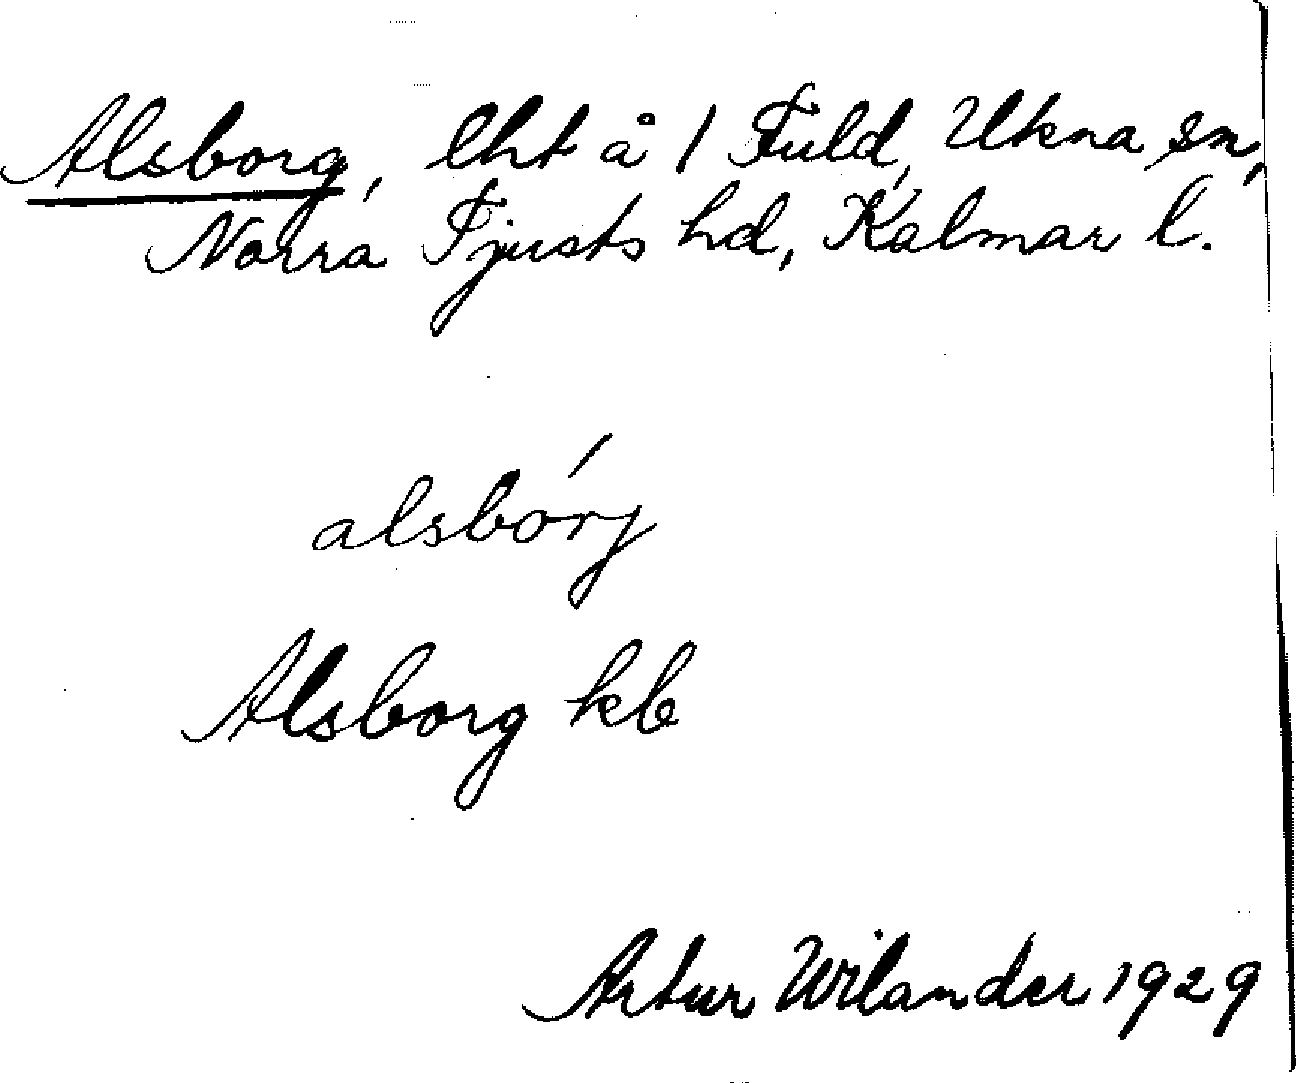 Alsborg, lht å 1 Fuld, Ukna sn,
Norra Tjusts hd, Kalmar l.
alsbórj
Alsborg kb
Artur Wilander 1929